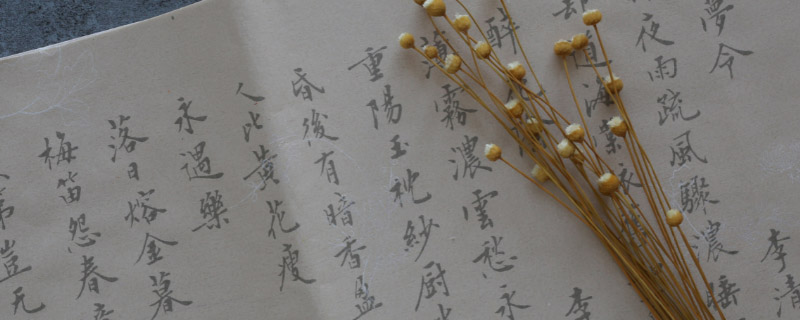 夢令 李清
夜雨疏風驟濃睡
却道海棠依
醉花陰 李
薄霧濃雲愁永
重陽玉枕紗厨
昏後有暗香盈
人比黃花瘦
永遇樂
落日熔金暮
梅笛怨春
豈无